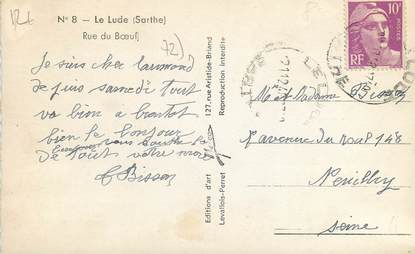 N° 8 - Le Lude (Sarthe)
Rue du Bœuf
72)
Je suis chez Raymond
de puis samedi tout
va bien a bientot
bien le bonjour
de tout votre
C Bisson
Editions d'art
Levallois-Perret
127, rue Aristide-Briand
Reproduction interdite
LE LUDE
10F
POSTES
RF
M et Madame
avenue du roul 148
Neuilly
Seine